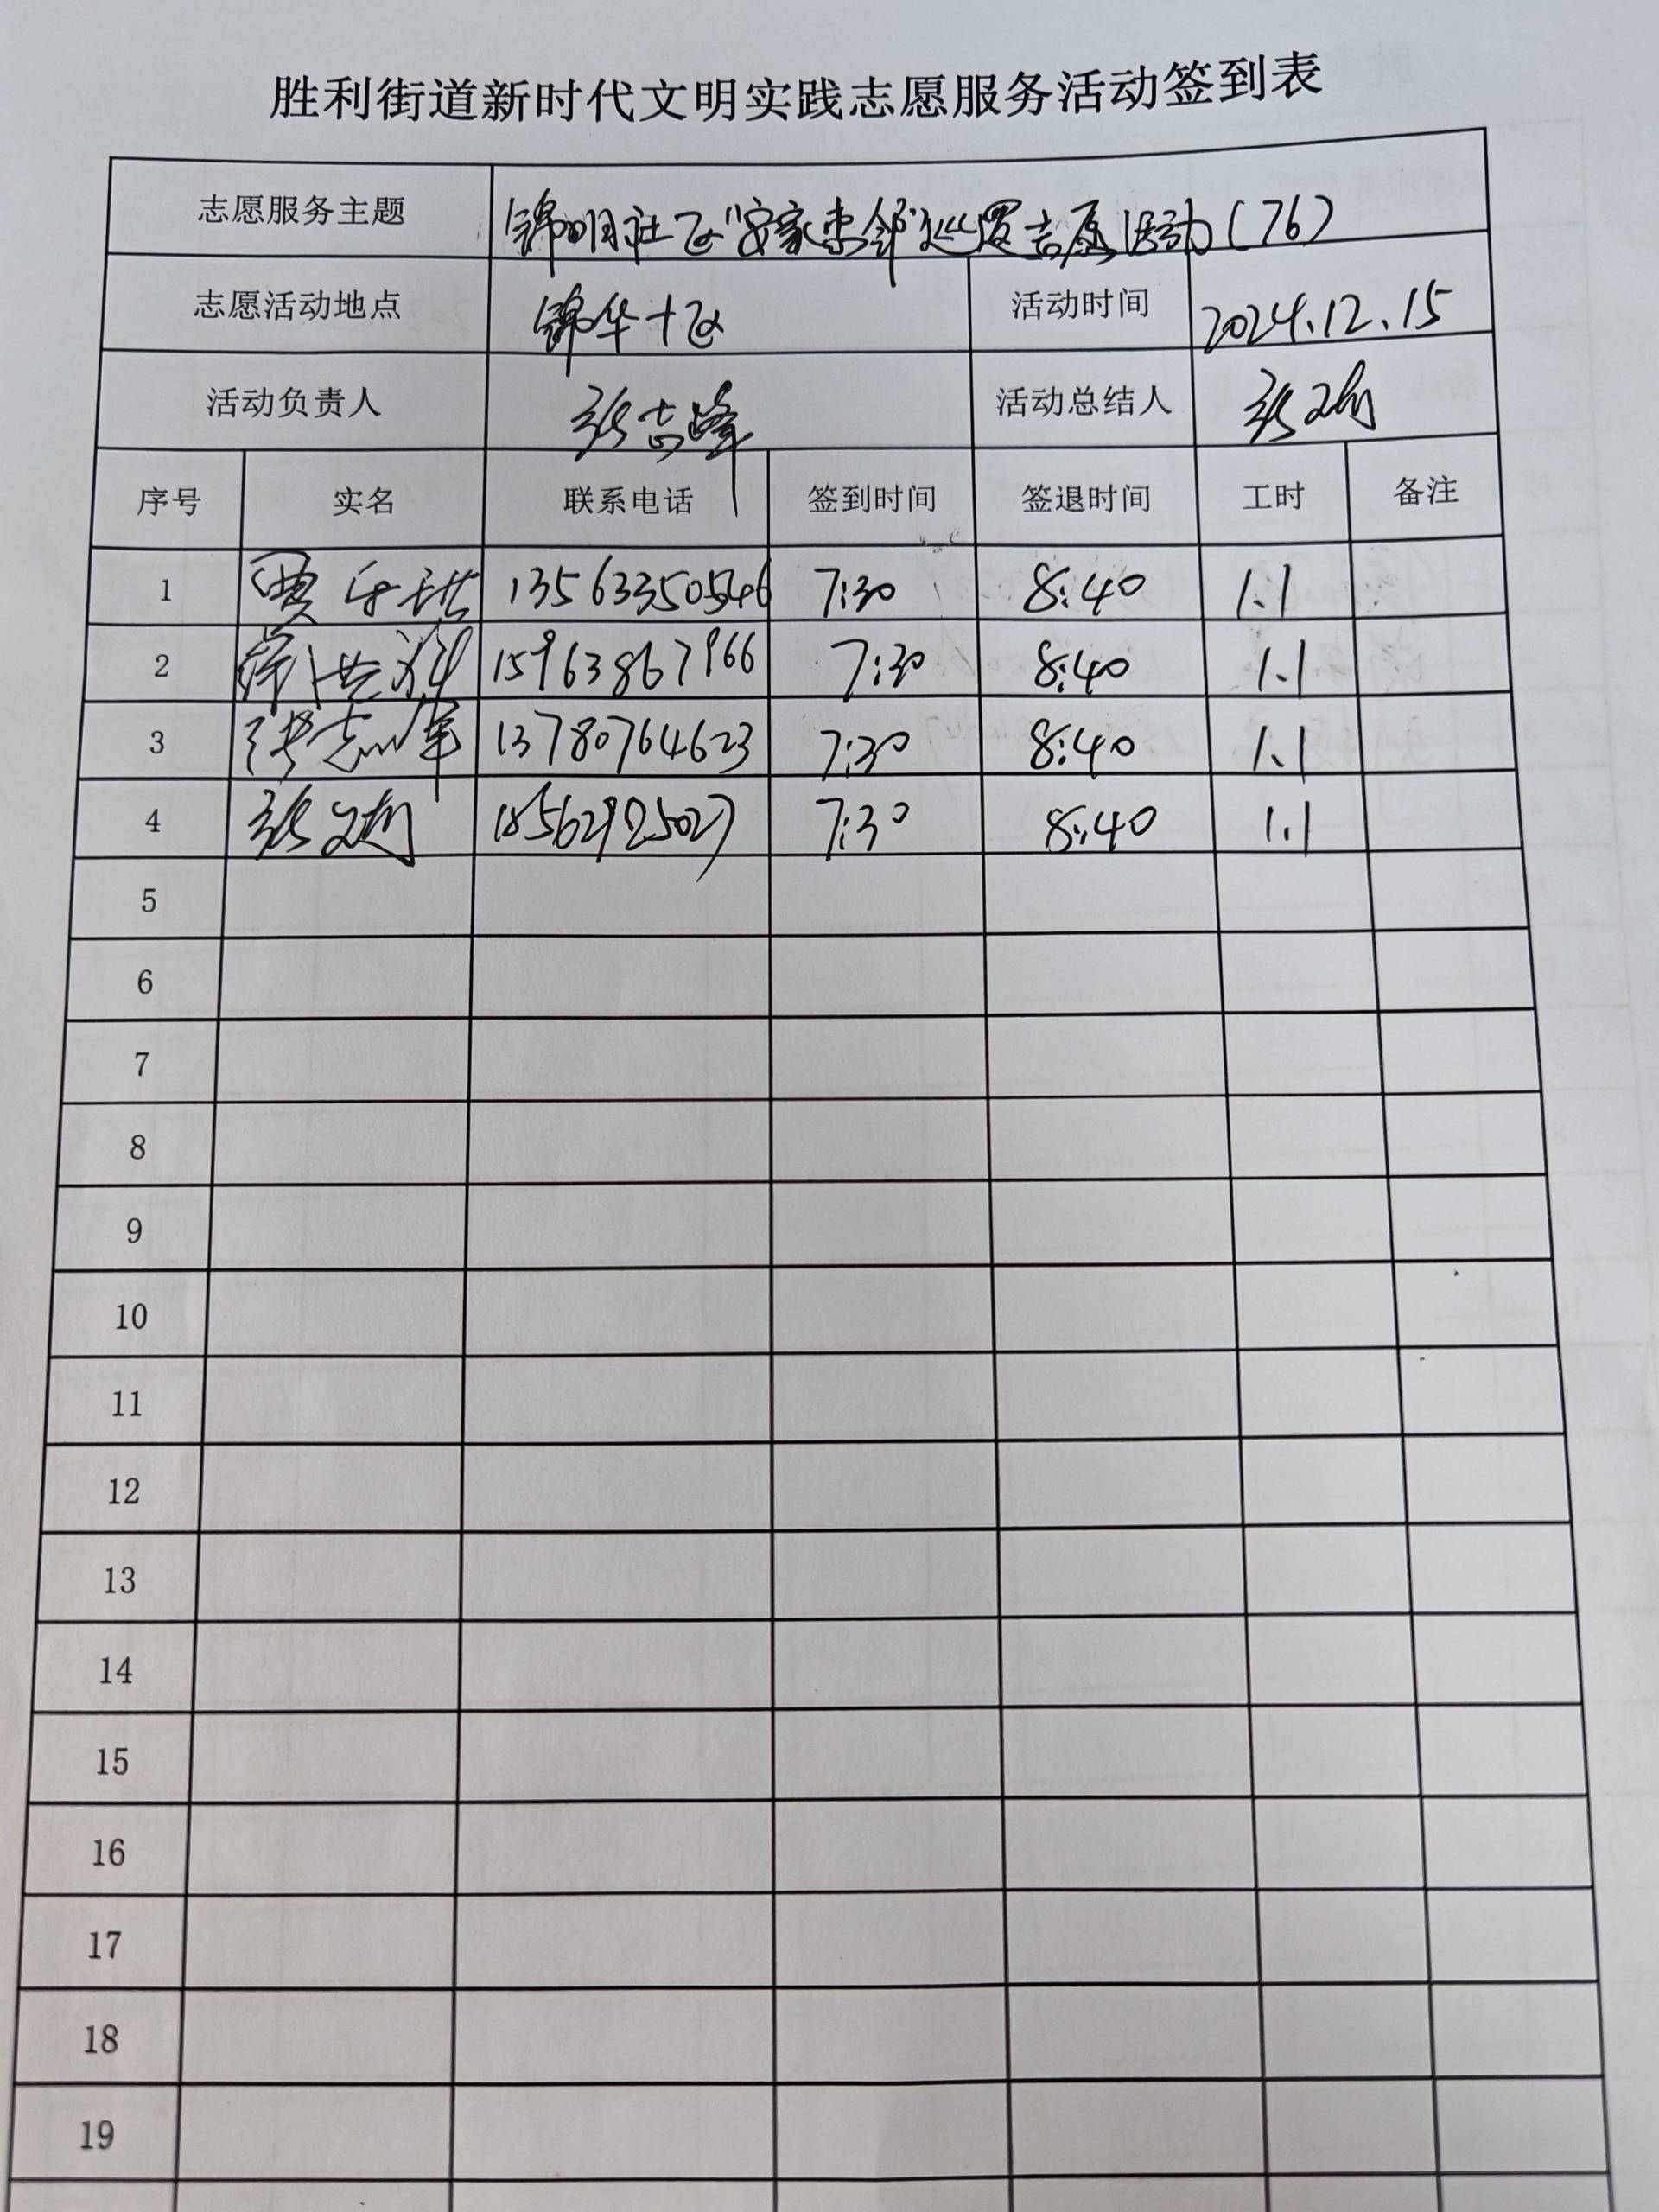 胜利街道新时代文明实践志愿服务活动签到表
志愿服务主题 锦明社区"安家李邻"巡逻志愿活动(76)
志愿活动地点 锦华十区 活动时间 2024.12.15
活动负责人 张志峰 活动总结人 张文
序号 实名 联系电话 签到时间 签退时间 工时 备注
1 贾 13563350546 7:30 8:40 1.1
2 15963867966 7:30 8:40 1.1
3 张志军 13780764623 7:30 8:40 1.1
4 张文 18562925027 7:30 8:40 1.1
5
6
7
8
9
10
11
12
13
14
15
16
17
18
19